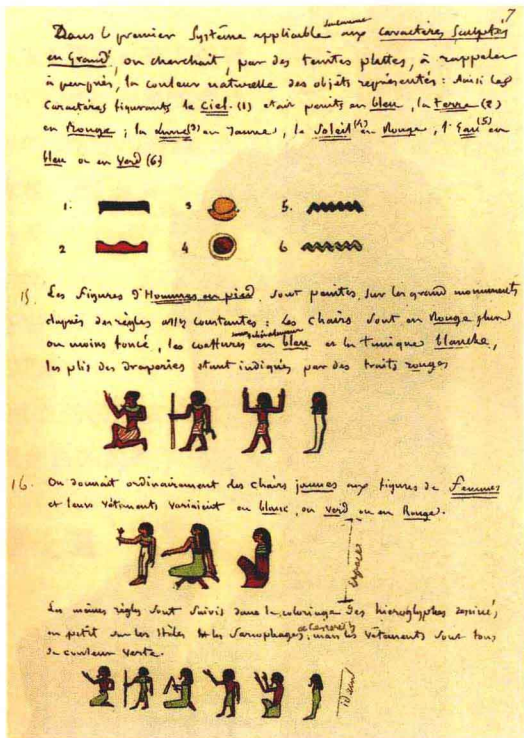 7
Dans le premier Système applicable seulement aux caractères Sculptés
en Grand, on cherchait, par des teintes plattes, à rappeler
à peuprès, la couleur naturelle des objets représentés: Ainsi les
Caractères figurants le Ciel (1) etait peints en bleu, la terre (2)
en Rouge; la Lune (3) en Jaune, le Soleil (4) en Rouge, l'Eau (5) en
bleu ou en Verd (6)
1. 3 5.
2 4 6
15. Les figures d'Hommes en pied, sont peintes, sur les grand monuments
d'après des règles assez constantes: les chairs sont en Rouge plus
ou moins foncé, les coeffures en bleu et la tunique blanche,
les plis des draperies étant indiqués par des traits rouges
16. On donnait ordinairement des chairs jaunes aux figures de femmes
et leurs vêtements variaient en blanc, en verd ou en Rouge.
espace
Les mêmes règles sont suivis dans le coloriage des hieroglyphes dessinés
en petit sur les Stèles et les Sarcophages; mais les Vêtements sont tous
de couleur verte.
idem